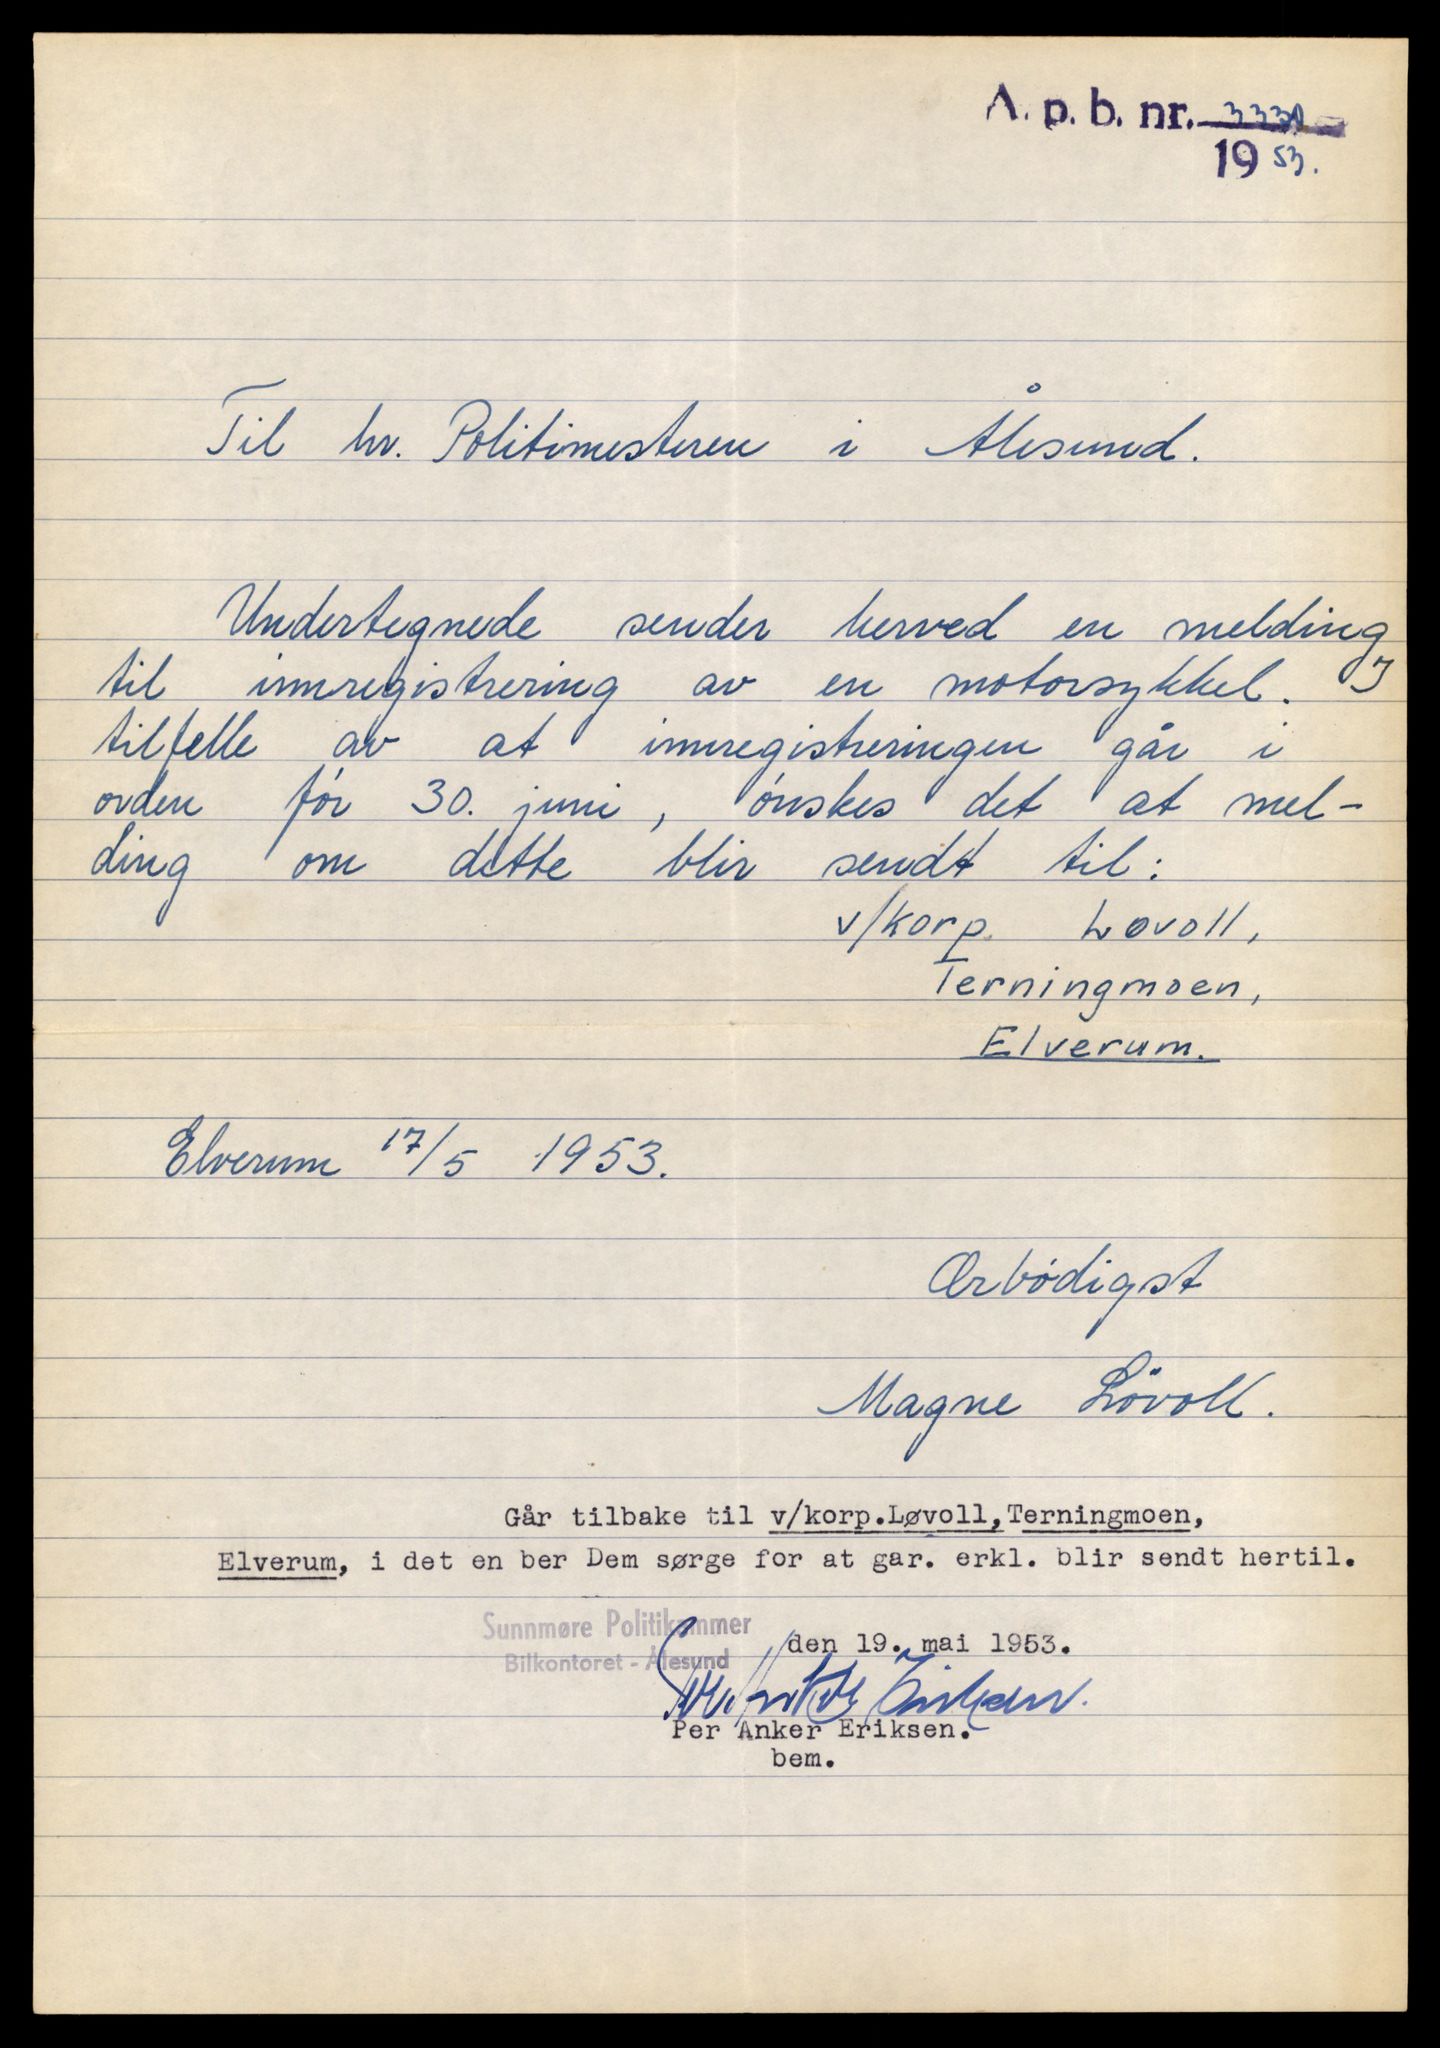 A. p. b. nr.
19 53.
Til hr. Politimesteren i Ålesund.
Undertegnede sender herved en melding
til innregistrering av en motorsykkel. I
tilfelle av at innregistreringen går i
orden før 30. juni, ønskes det at mel-
ding om dette blir sendt til:
v/korp. Løvoll,
Terningmoen,
Elverum.
Elverum 17/5 1953.
Ærbødigst
Magne Løvoll.
Går tilbake til v/korp.Løvoll,Terningmoen,
Elverum, i det en ber Dem sørge for at gar. erkl. blir sendt hertil.
Sunnmøre Politikammer
Bilkontoret - Ålesund
den 19. mai 1953.
Per Anker Eriksen
Per Anker Eriksen.
bem.